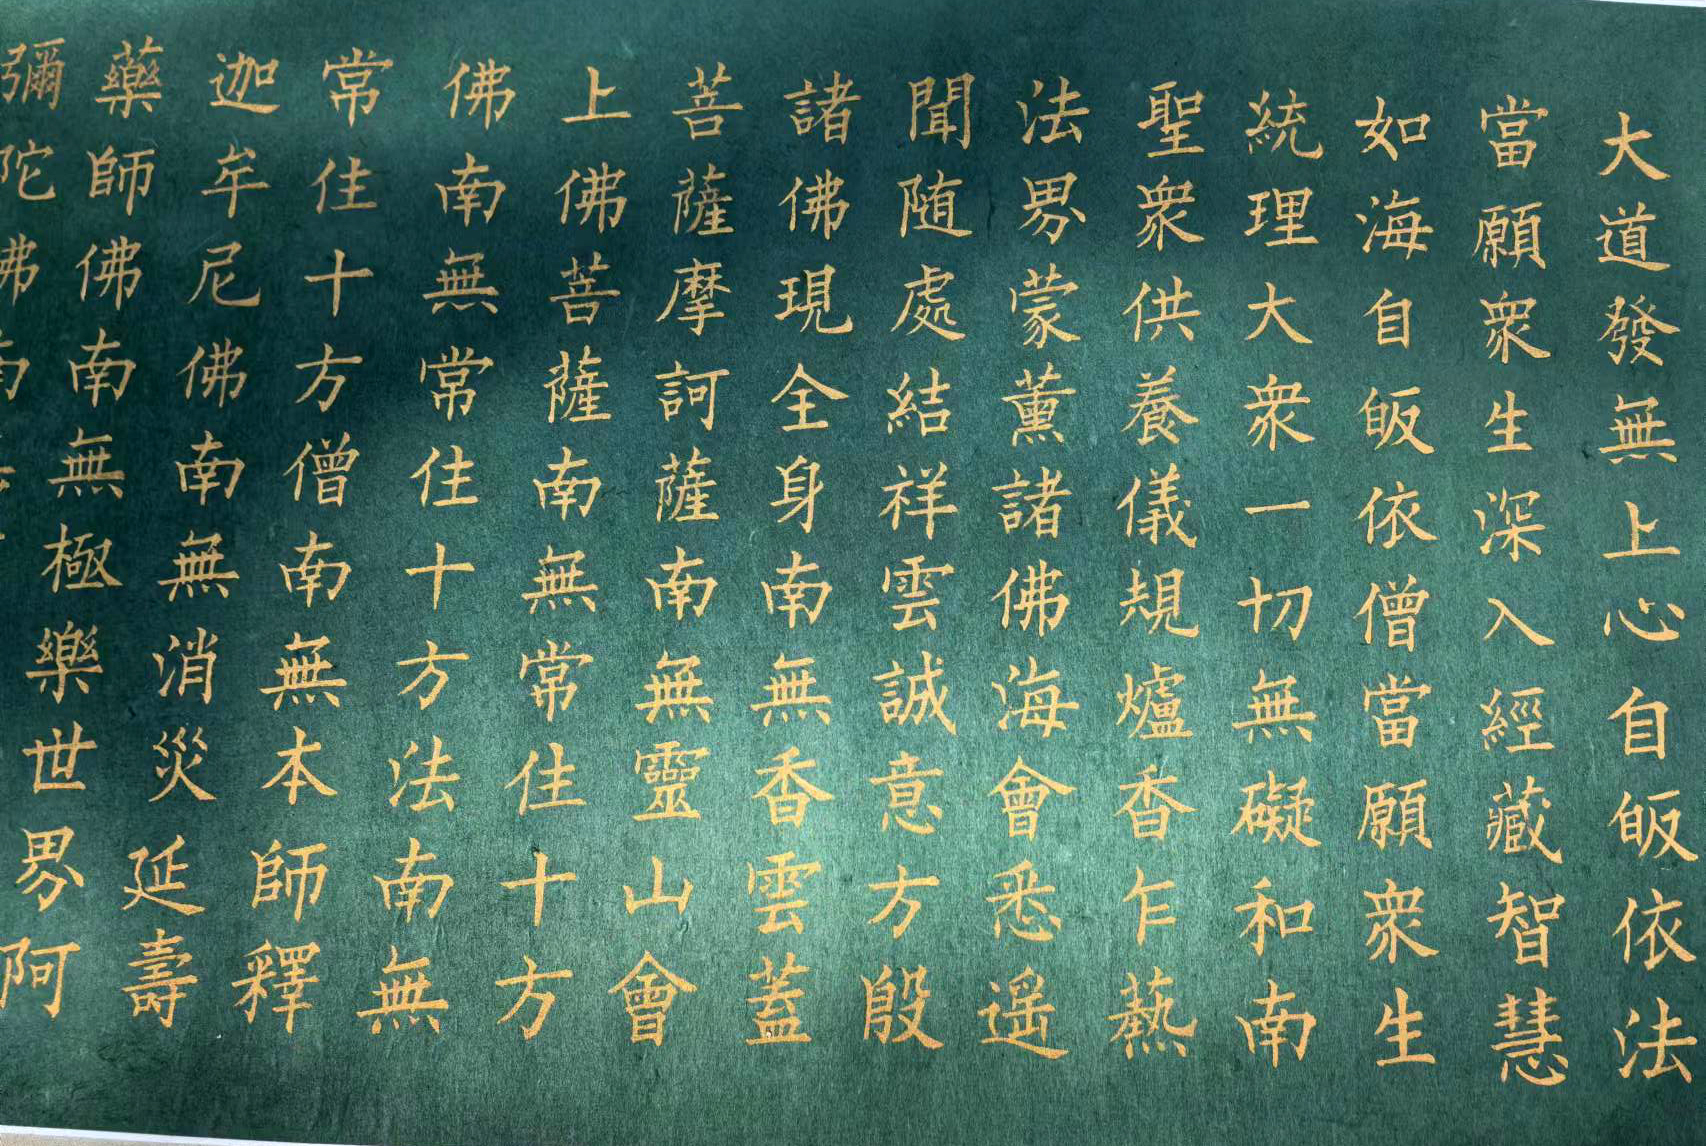 大道發無上心自皈依法
當願衆生深入經藏智慧
如海自皈依僧當願衆生
統理大衆一切無礙和南
聖衆供養儀規爐香乍爇
法界蒙薰諸佛海會悉遥
聞随處結祥雲誠意方殷
諸佛現全身南無香雲蓋
菩薩摩訶薩南無靈山會
上佛菩薩南無常住十方
佛南無常住十方法南無
常住十方僧南無本師釋
迦牟尼佛南無消災延壽
藥師佛南無極樂世界阿
彌陀佛南